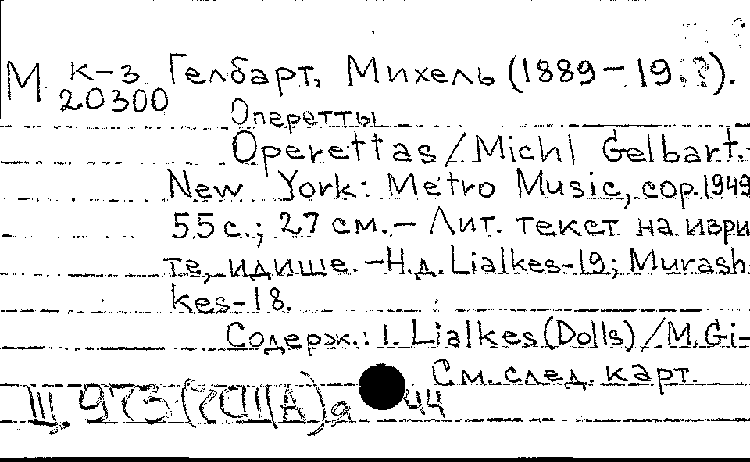 М к-з Гелбарт, Михель (1889-19.?).
20300
Оперетты
Operettas/Michl Gelbart.-
New York: Metro Music, cop.1949
55 с.; 27 см.- Лит. текст на иври
те, идише.-Н.д. Lialkes-19; Murash
kes-18.
Содерж.: 1. Lialkes (Dolls)/M.Gi-
См. след. карт.
III. 973(США)я 44